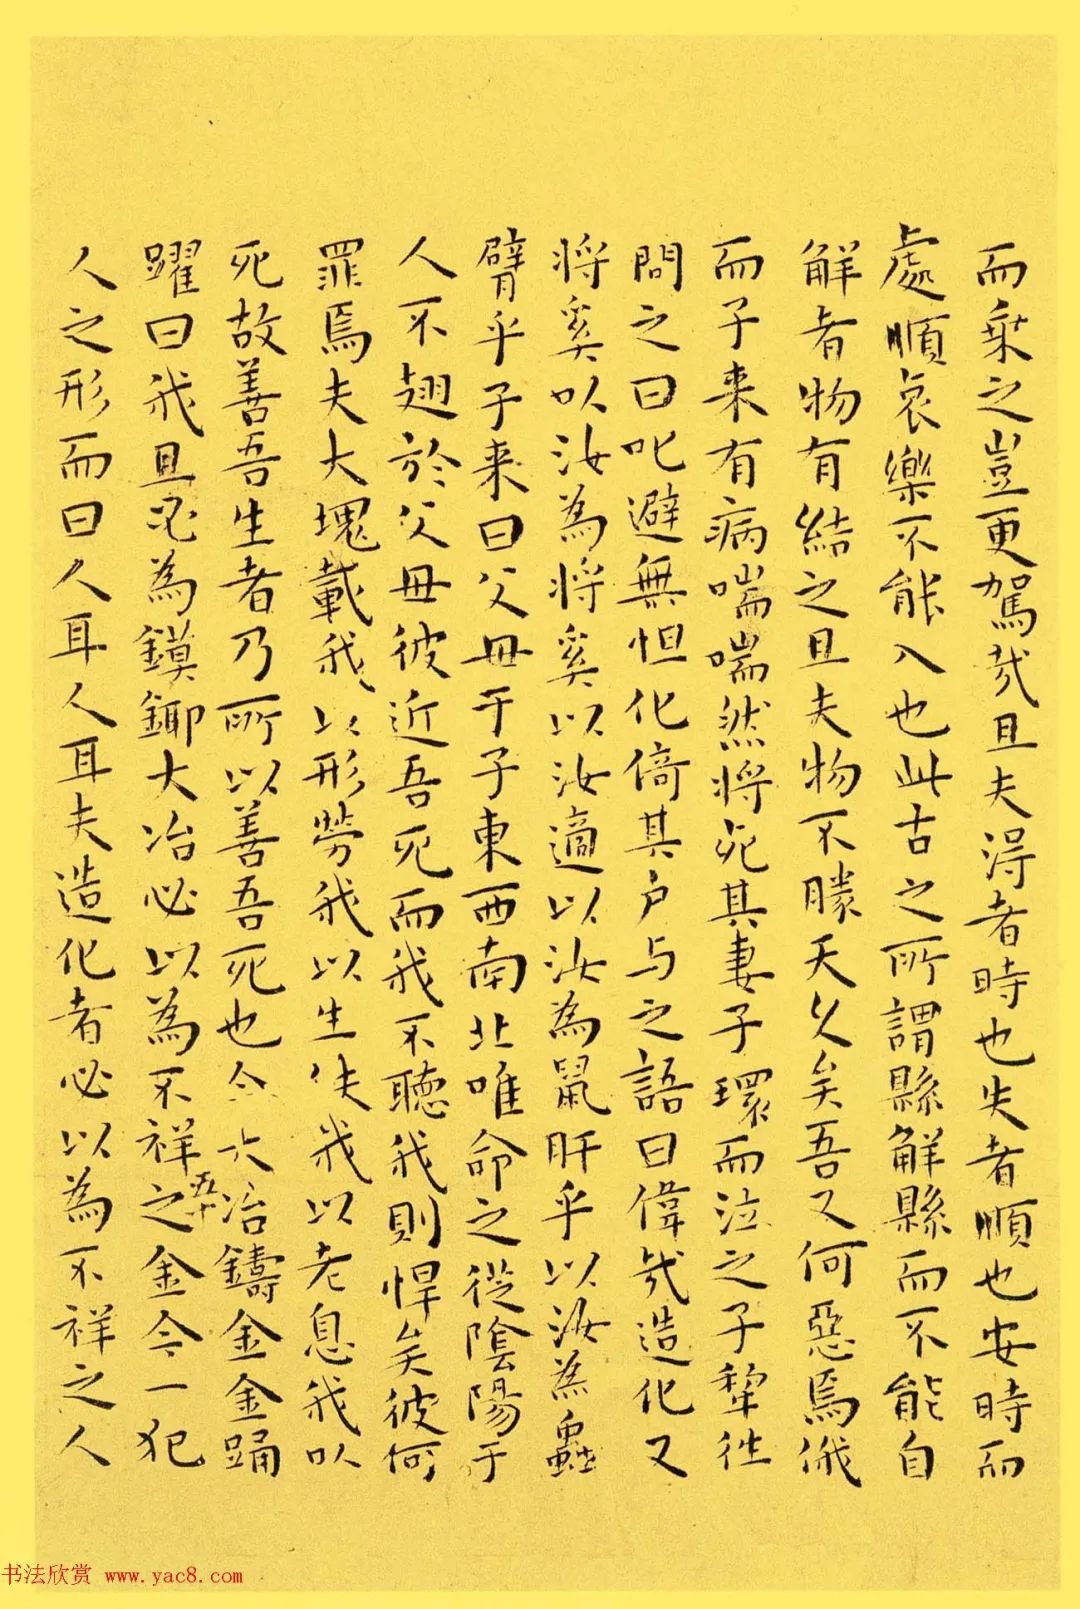 而乗之豈更駕哉且夫淂者時也失者順也安時而
處順哀樂不能入也此古之所謂縣解縣而不能自
解者物有結之且夫物不勝天久矣吾又何惡焉俄
而子来有病喘喘然将死其妻子環而泣之子犂徃
問之曰叱避無怛化倚其户与之語曰偉哉造化又
将奚以汝為将奚以汝適以汝為鼠肝乎以汝為蟲
臂乎子来曰父母于子東西南北唯命之從陰陽于
人不翅於父母彼近吾死而我不聽我則悍矣彼何
罪焉夫大塊載我以形勞我以生佚我以老息我以
死故善吾生者乃所以善吾死也今大冶鑄金金踊
躍曰我且必為鏌鎁大冶必以為不祥之金今一犯
五十
人之形而曰人耳人耳夫造化者必以為不祥之人
书法欣赏 www.yac8.com